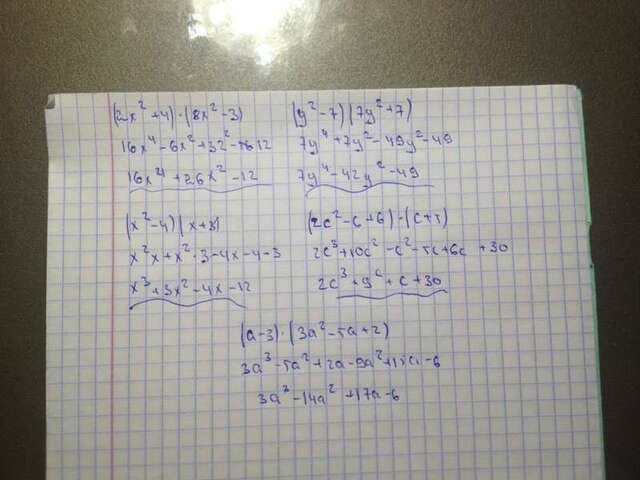 (2x² + 4) · (8x² - 3)
16x⁴ - 6x² + 32² - 12
16x⁴ + 26x² - 12
(y² - 7) (7y² + 7)
7y⁴ + 7y² - 49y² - 49
7y⁴ - 42y² - 49
(x² - 4) (x + 3)
x²x + x² · 3 - 4x - 4 - 3
x³ + 3x² - 4x - 12
(2c² - c + 6) · (c + 5)
2c³ + 10c² - c² - 5c + 6c + 30
2c³ + 9² + c + 30
(a - 3) · (3a² - 5a + 2)
3a³ - 5a² + 2a - 9a² + 15a - 6
3a³ - 14a² + 17a - 6